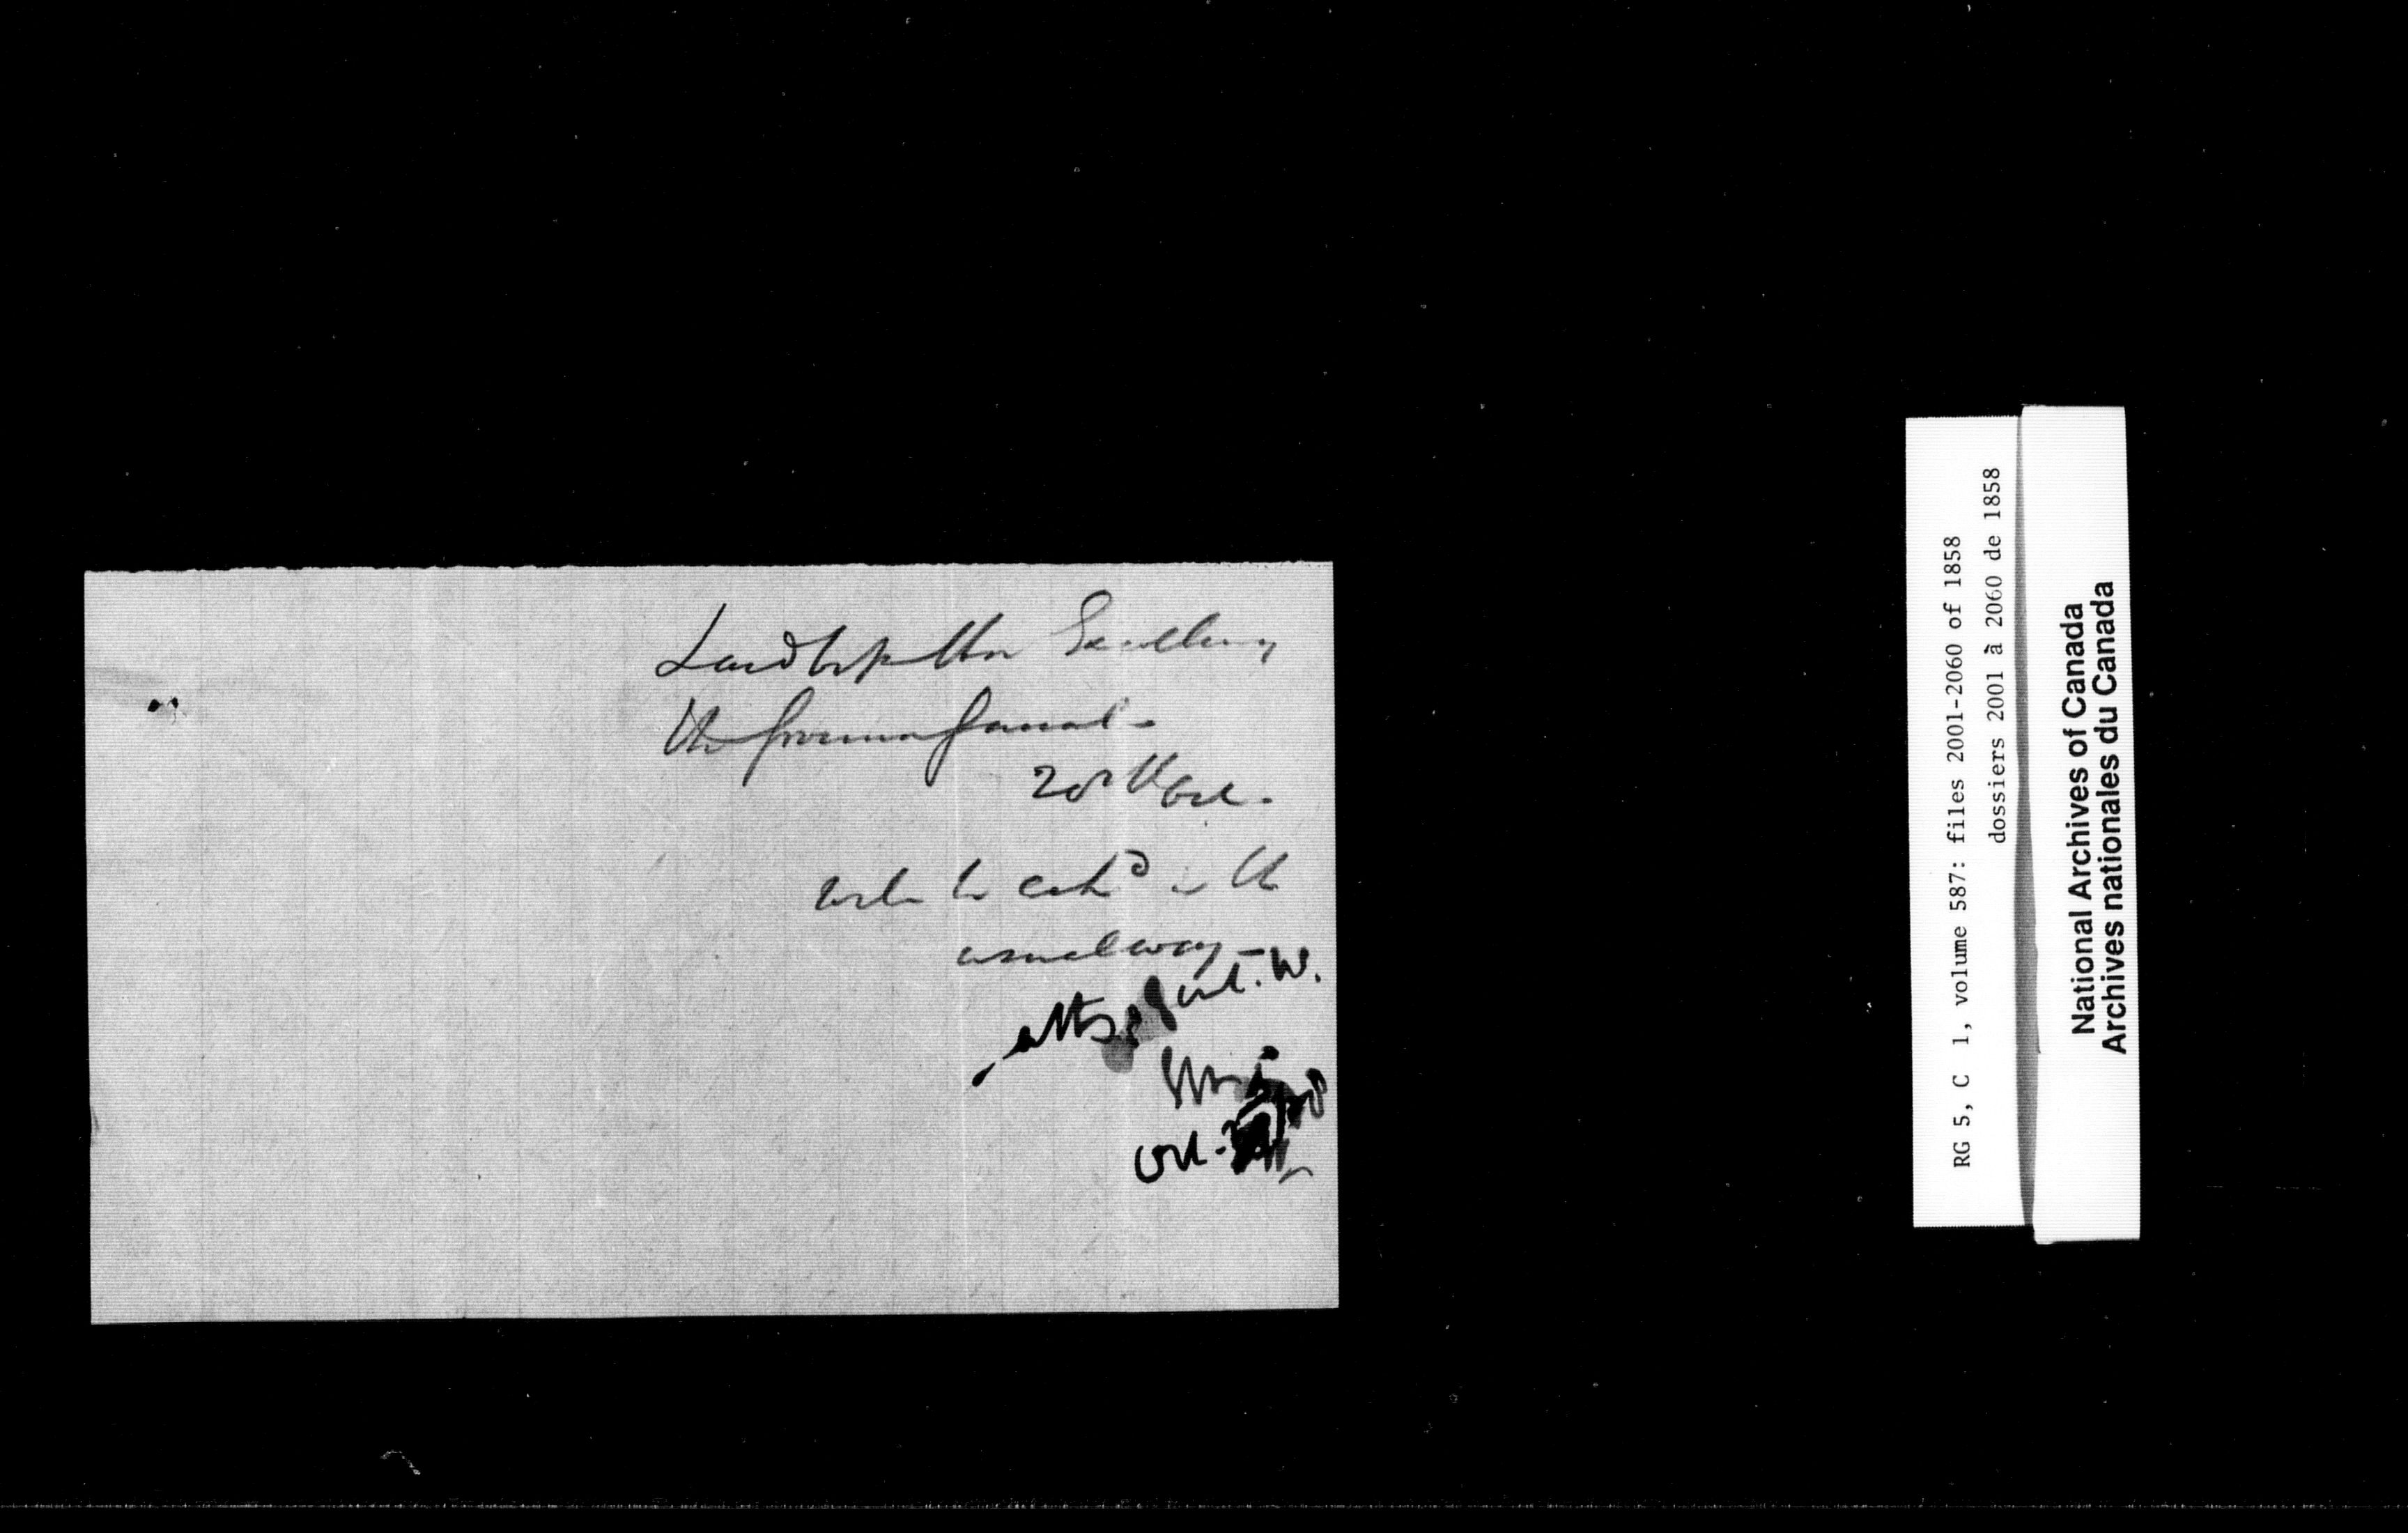 Laid before His Excellency
the Governor General -
20th Oct.
to be
in the
usual way -
Atty. Genl. W.
Oct.
RG 5, C 1, volume 587: files 2001-2060 of 1858
dossiers 2001 à 2060 de 1858
National Archives of Canada
Archives nationales du Canada